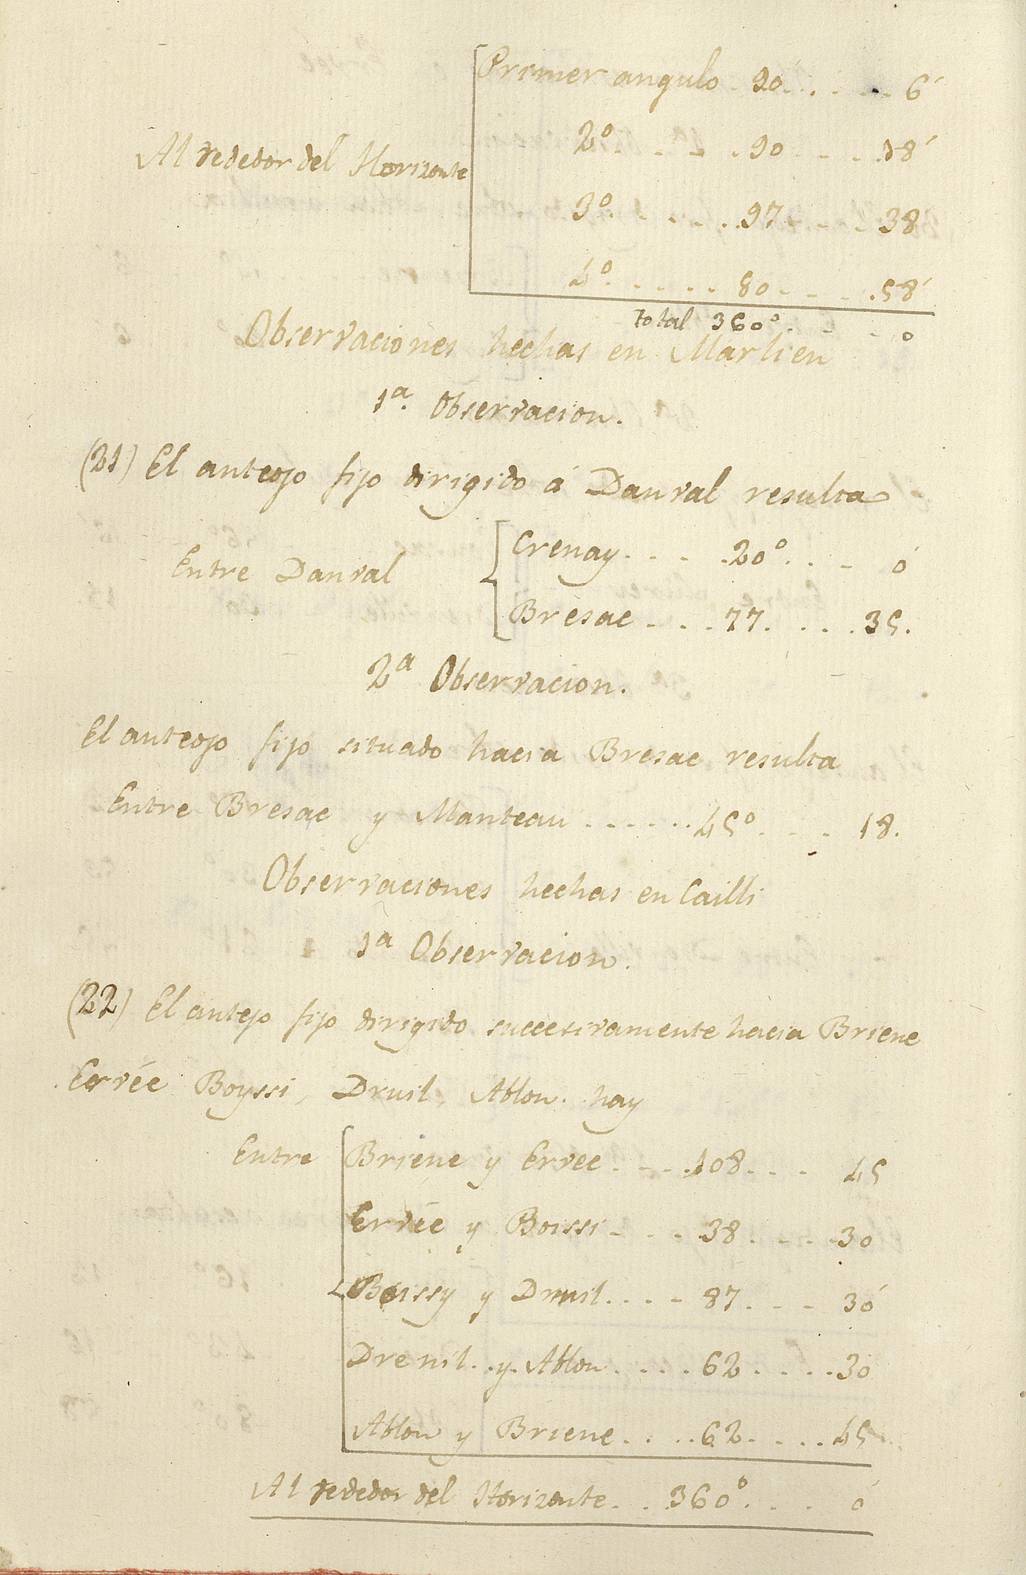 Primer angulo . 90. . . . . . 6´
2º. . . . . 90 . . . . 18´
Al rededor del Horizonte
3º. . . . . . 97 . . . . 38
4º. . . . . . 80 . . . . 58´
Total 360º. . . . . 0
Observaciones hechas en Marlien
1ª. Observacion.
(21) El anteojo fijo dirigido á Danval resulta
Crenay . . . . 20º. . . . 0´
Entre Danval
Bresac . . . 77. . . . 35.
2ª Observacion.
El anteojo fijo situado hacia Bresac resulta
Entre Bresac y Manteau . . . . . . 45º. . . . 18.
Observaciones hechas en Cailli
1ª Observacion.
(22) El antejo fijo dirigido succesivamente hacia Briene
Ervée Boyssi, Druil, Ablon. hay
Entre Briene y Ervee. . . . 108. . . . 45
Ervée y Boissi . . . . 38 . . . . 30
Boissy y Druil. . . . . 87. . . . 30´
Drenil. . y. Ablon. . . . . 62 . . . . . 30
Ablon y Briene. . . . . 62. . . . . 45
Al rededor del Horizonte. . . 360º. . . . 0´